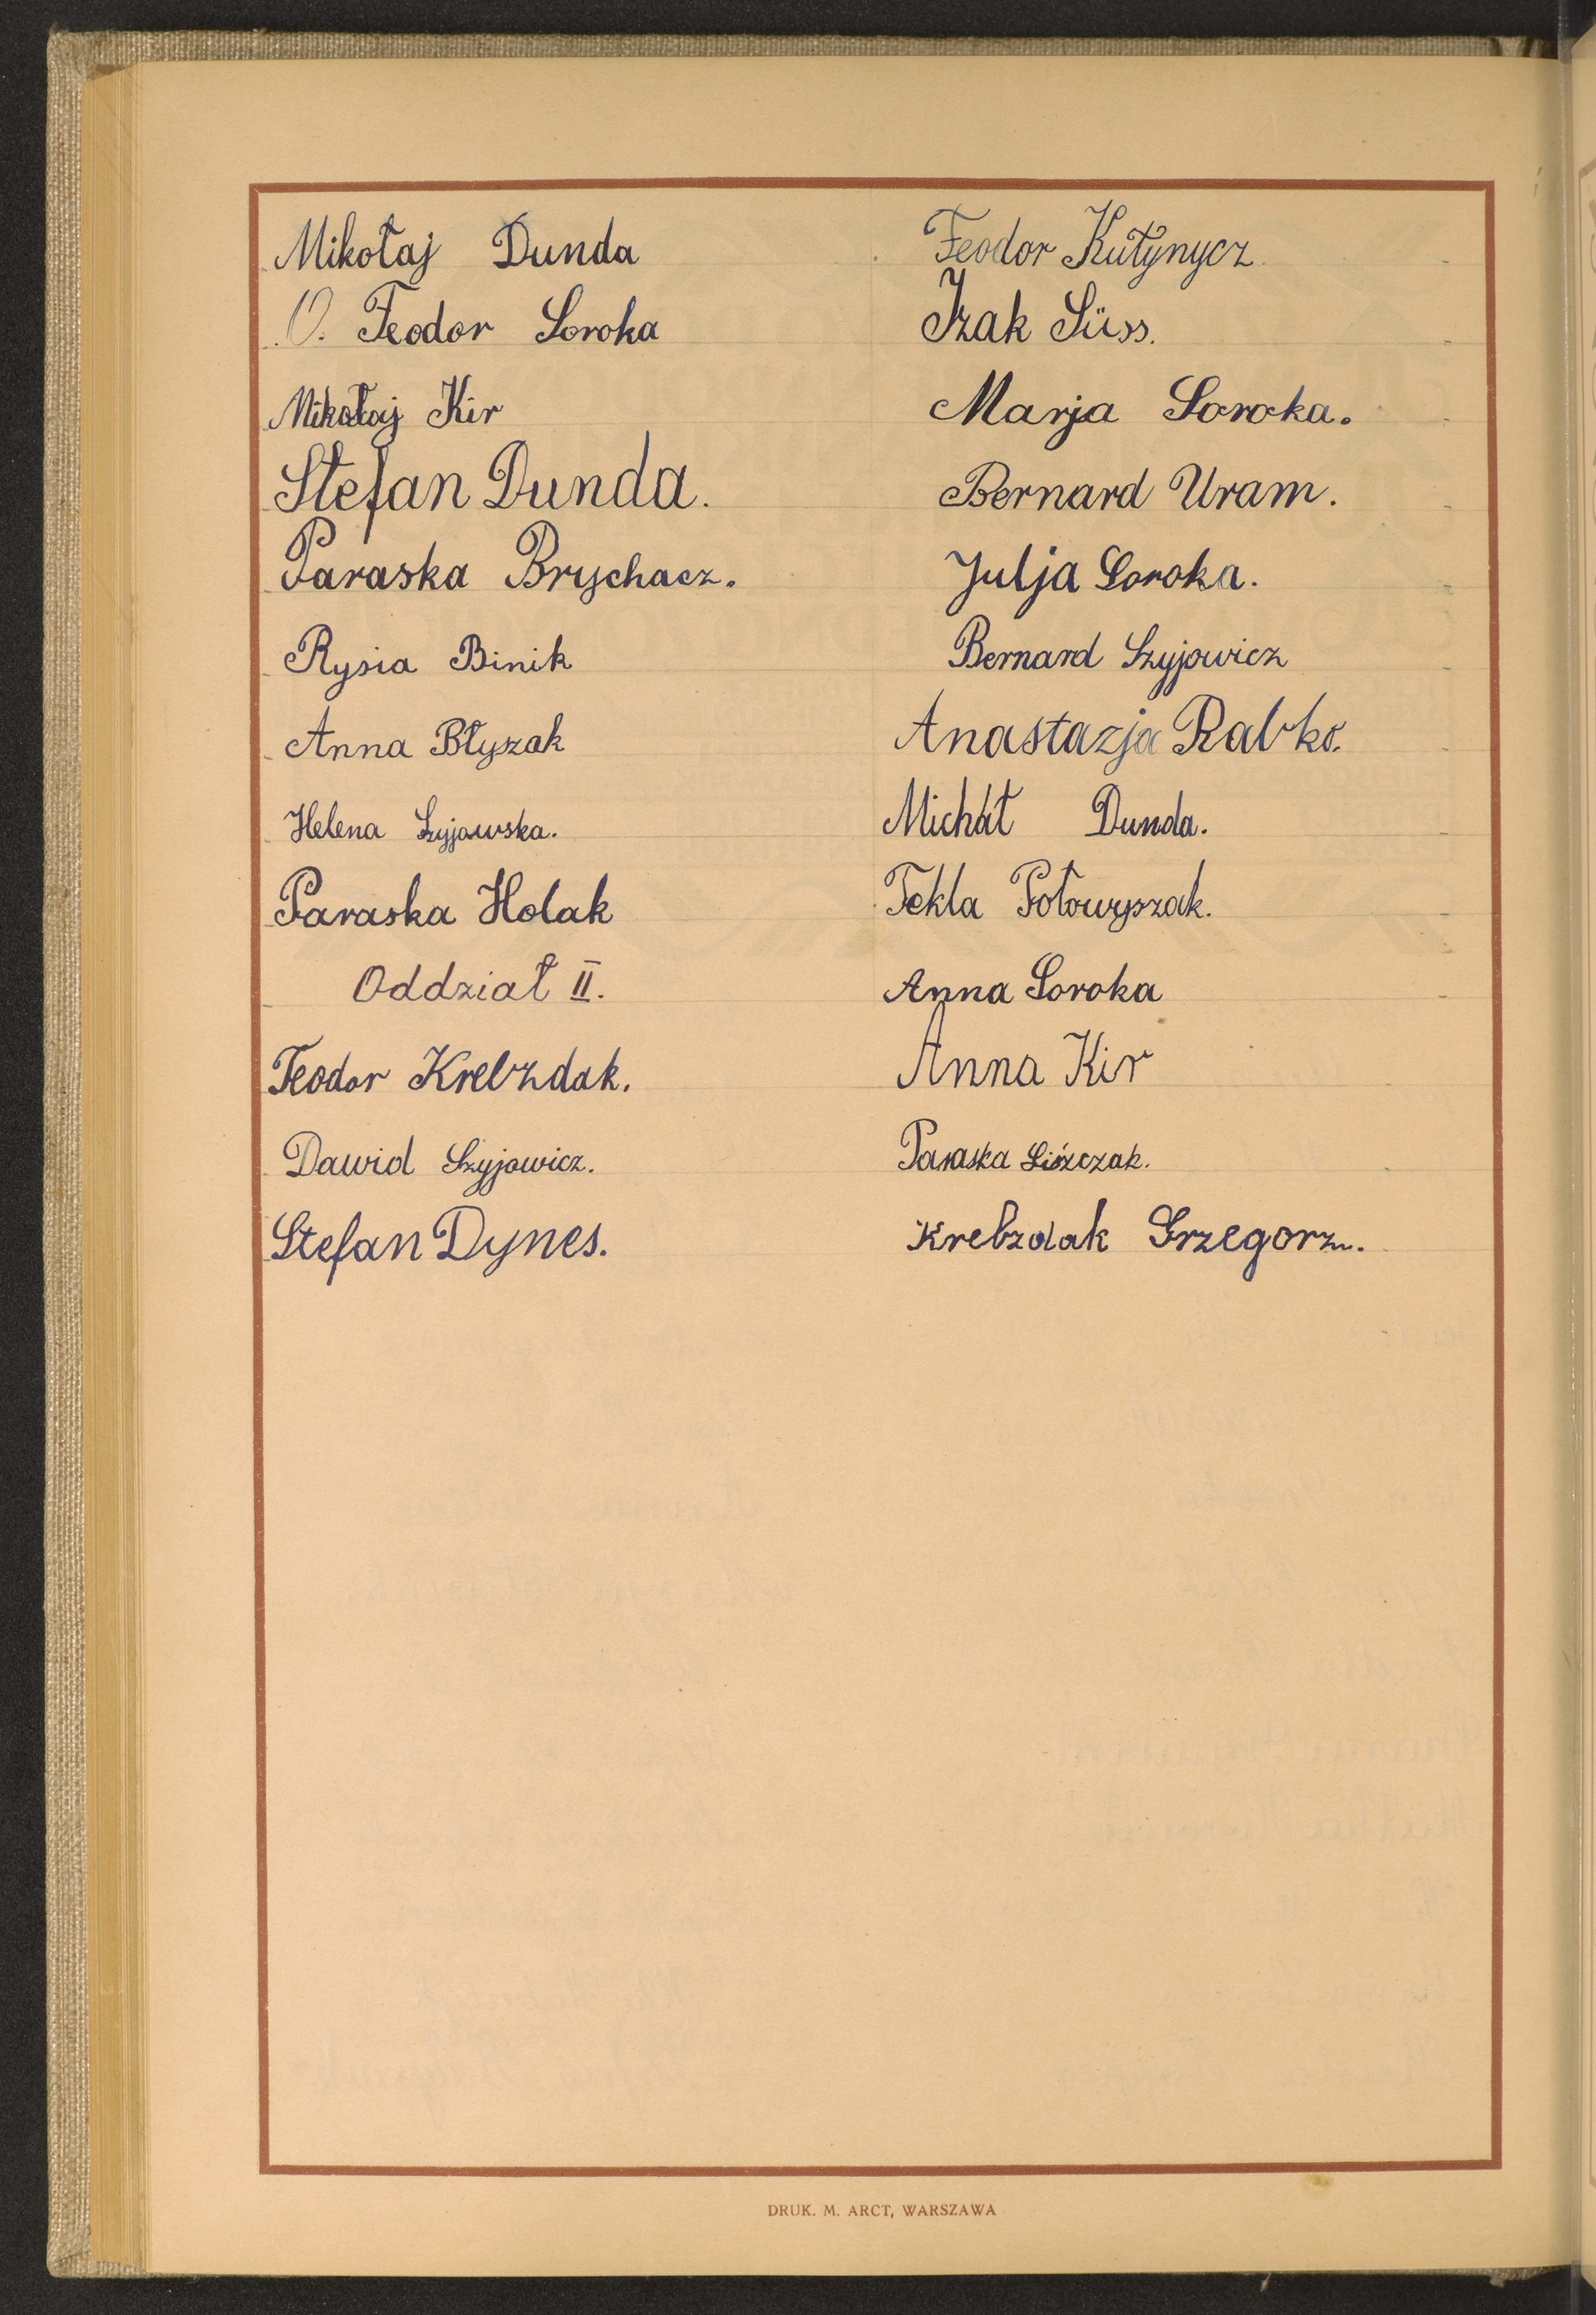 Mikołaj Dunda
O. Teodor Soroka
Mikołaj Kir
Stefan Dunda.
Paraska Brychacz.
Rysia Binik
Anna Błyszak
Helena Szyjowska.
Paraska Holak
Oddział II.
Teodor Krebzdak.
Dawid Szyjowicz.
Stefan Dynes.
Feodor Kutynycz
Izak Süss.
Marja Soroka.
Bernard Uram.
Julja Soroka.
Bernard Szyjowicz
Anastazja Rabko.
Michał Dunda.
Tekla Połowyszak.
Anna Soroka
Anna Kir
Paraska
Krebzdak Grzegorz.
DRUK. M. ARCT, WARSZAWA